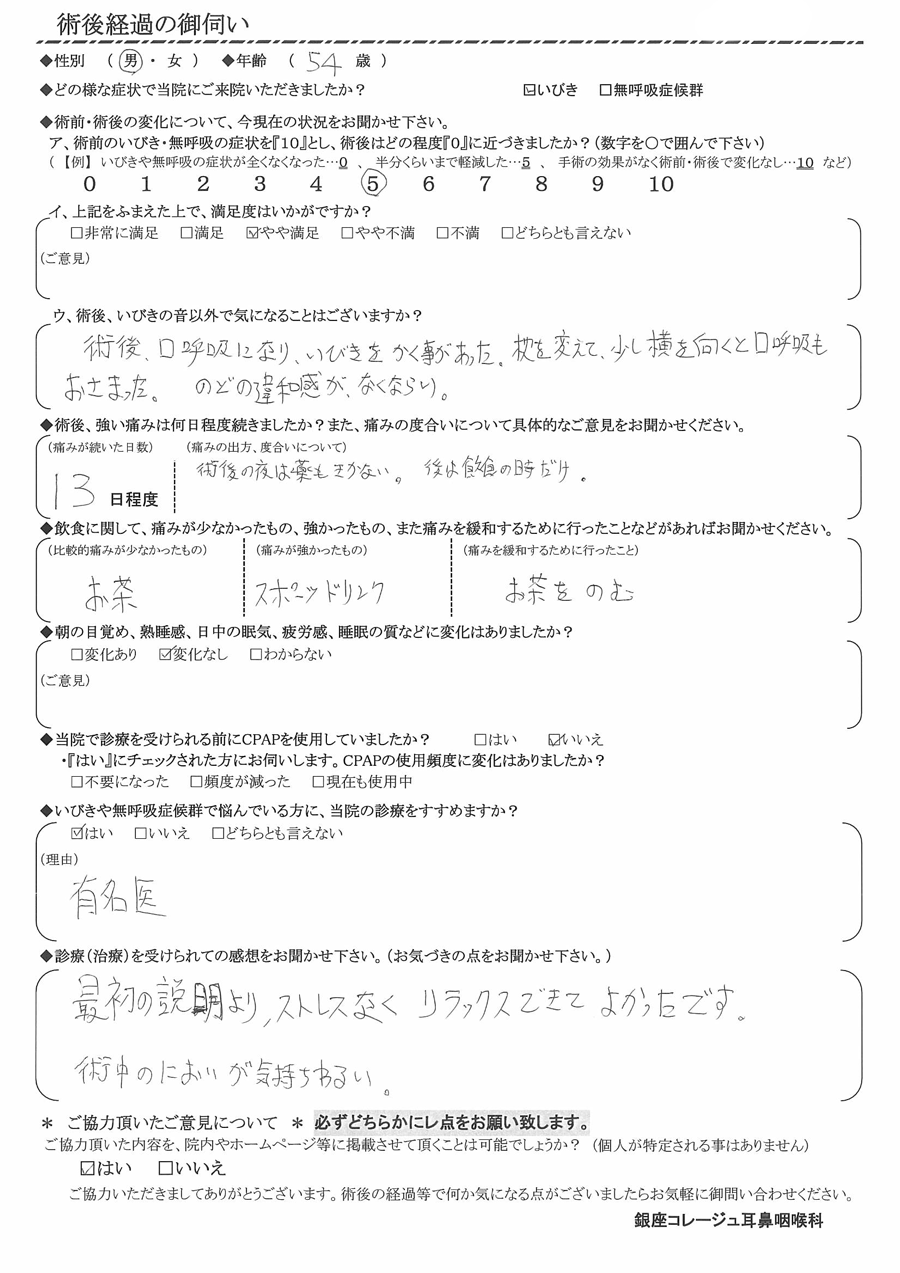 術後経過の御伺い
◆性別 （ 男 ・ 女 ） ◆年齢 （ 54 歳 ）
◆どの様な症状で当院にご来院いただきましたか？ ☑いびき □無呼吸症候群
◆術前・術後の変化について、今現在の状況をお聞かせ下さい。
ア、術前のいびき・無呼吸の症状を『10』とし、術後はどの程度『0』に近づきましたか？（数字を○で囲んで下さい）
（ 【例】 いびきや無呼吸の症状が全くなくなった…0 、 半分くらいまで軽減した…5 、 手術の効果がなく術前・術後で変化なし…10 など）
0 1 2 3 4 5 6 7 8 9 10
イ、上記をふまえた上で、満足度はいかがですか？
□非常に満足 □満足 ☑やや満足 □やや不満 □不満 □どちらとも言えない
（ご意見）
ウ、術後、いびきの音以外で気になることはございますか？
術後、口呼吸になり、いびきをかく事があった。枕を変えて、少し横を向くと口呼吸も
おさまった。 のどの違和感が、なくならい。
◆術後、強い痛みは何日程度続きましたか？また、痛みの度合いについて具体的なご意見をお聞かせください。
（痛みが続いた日数） （痛みの出方、度合いについて）
術後の夜は薬もきかない。 後は飲食の時だけ。
13 日程度
◆飲食に関して、痛みが少なかったもの、強かったもの、また痛みを緩和するために行ったことなどがあればお聞かせください。
（比較的痛みが少なかったもの） （痛みが強かったもの） （痛みを緩和するために行ったこと）
お茶 スポーツドリンク お茶をのむ
◆朝の目覚め、熟睡感、日中の眠気、疲労感、睡眠の質などに変化はありましたか？
□変化あり ☑変化なし □わからない
（ご意見）
◆当院で診療を受けられる前にCPAPを使用していましたか？ □はい ☑いいえ
・『はい』にチェックされた方にお伺いします。CPAPの使用頻度に変化はありましたか？
□不要になった □頻度が減った □現在も使用中
◆いびきや無呼吸症候群で悩んでいる方に、当院の診療をすすめますか？
☑はい □いいえ □どちらとも言えない
（理由）
有名医
◆診療（治療）を受けられての感想をお聞かせ下さい。（お気づきの点をお聞かせ下さい。）
最初の説明より、ストレスなく リラックスできて よかったです。
術中のにおいが気持ちわるい。
＊ ご協力頂いたご意見について ＊ 必ずどちらかにレ点をお願い致します。
ご協力頂いた内容を、院内やホームページ等に掲載させて頂くことは可能でしょうか？ （個人が特定される事はありません）
☑はい □いいえ
ご協力いただきましてありがとうございます。術後の経過等で何か気になる点がございましたらお気軽に御問い合わせください。
銀座コレージュ耳鼻咽喉科